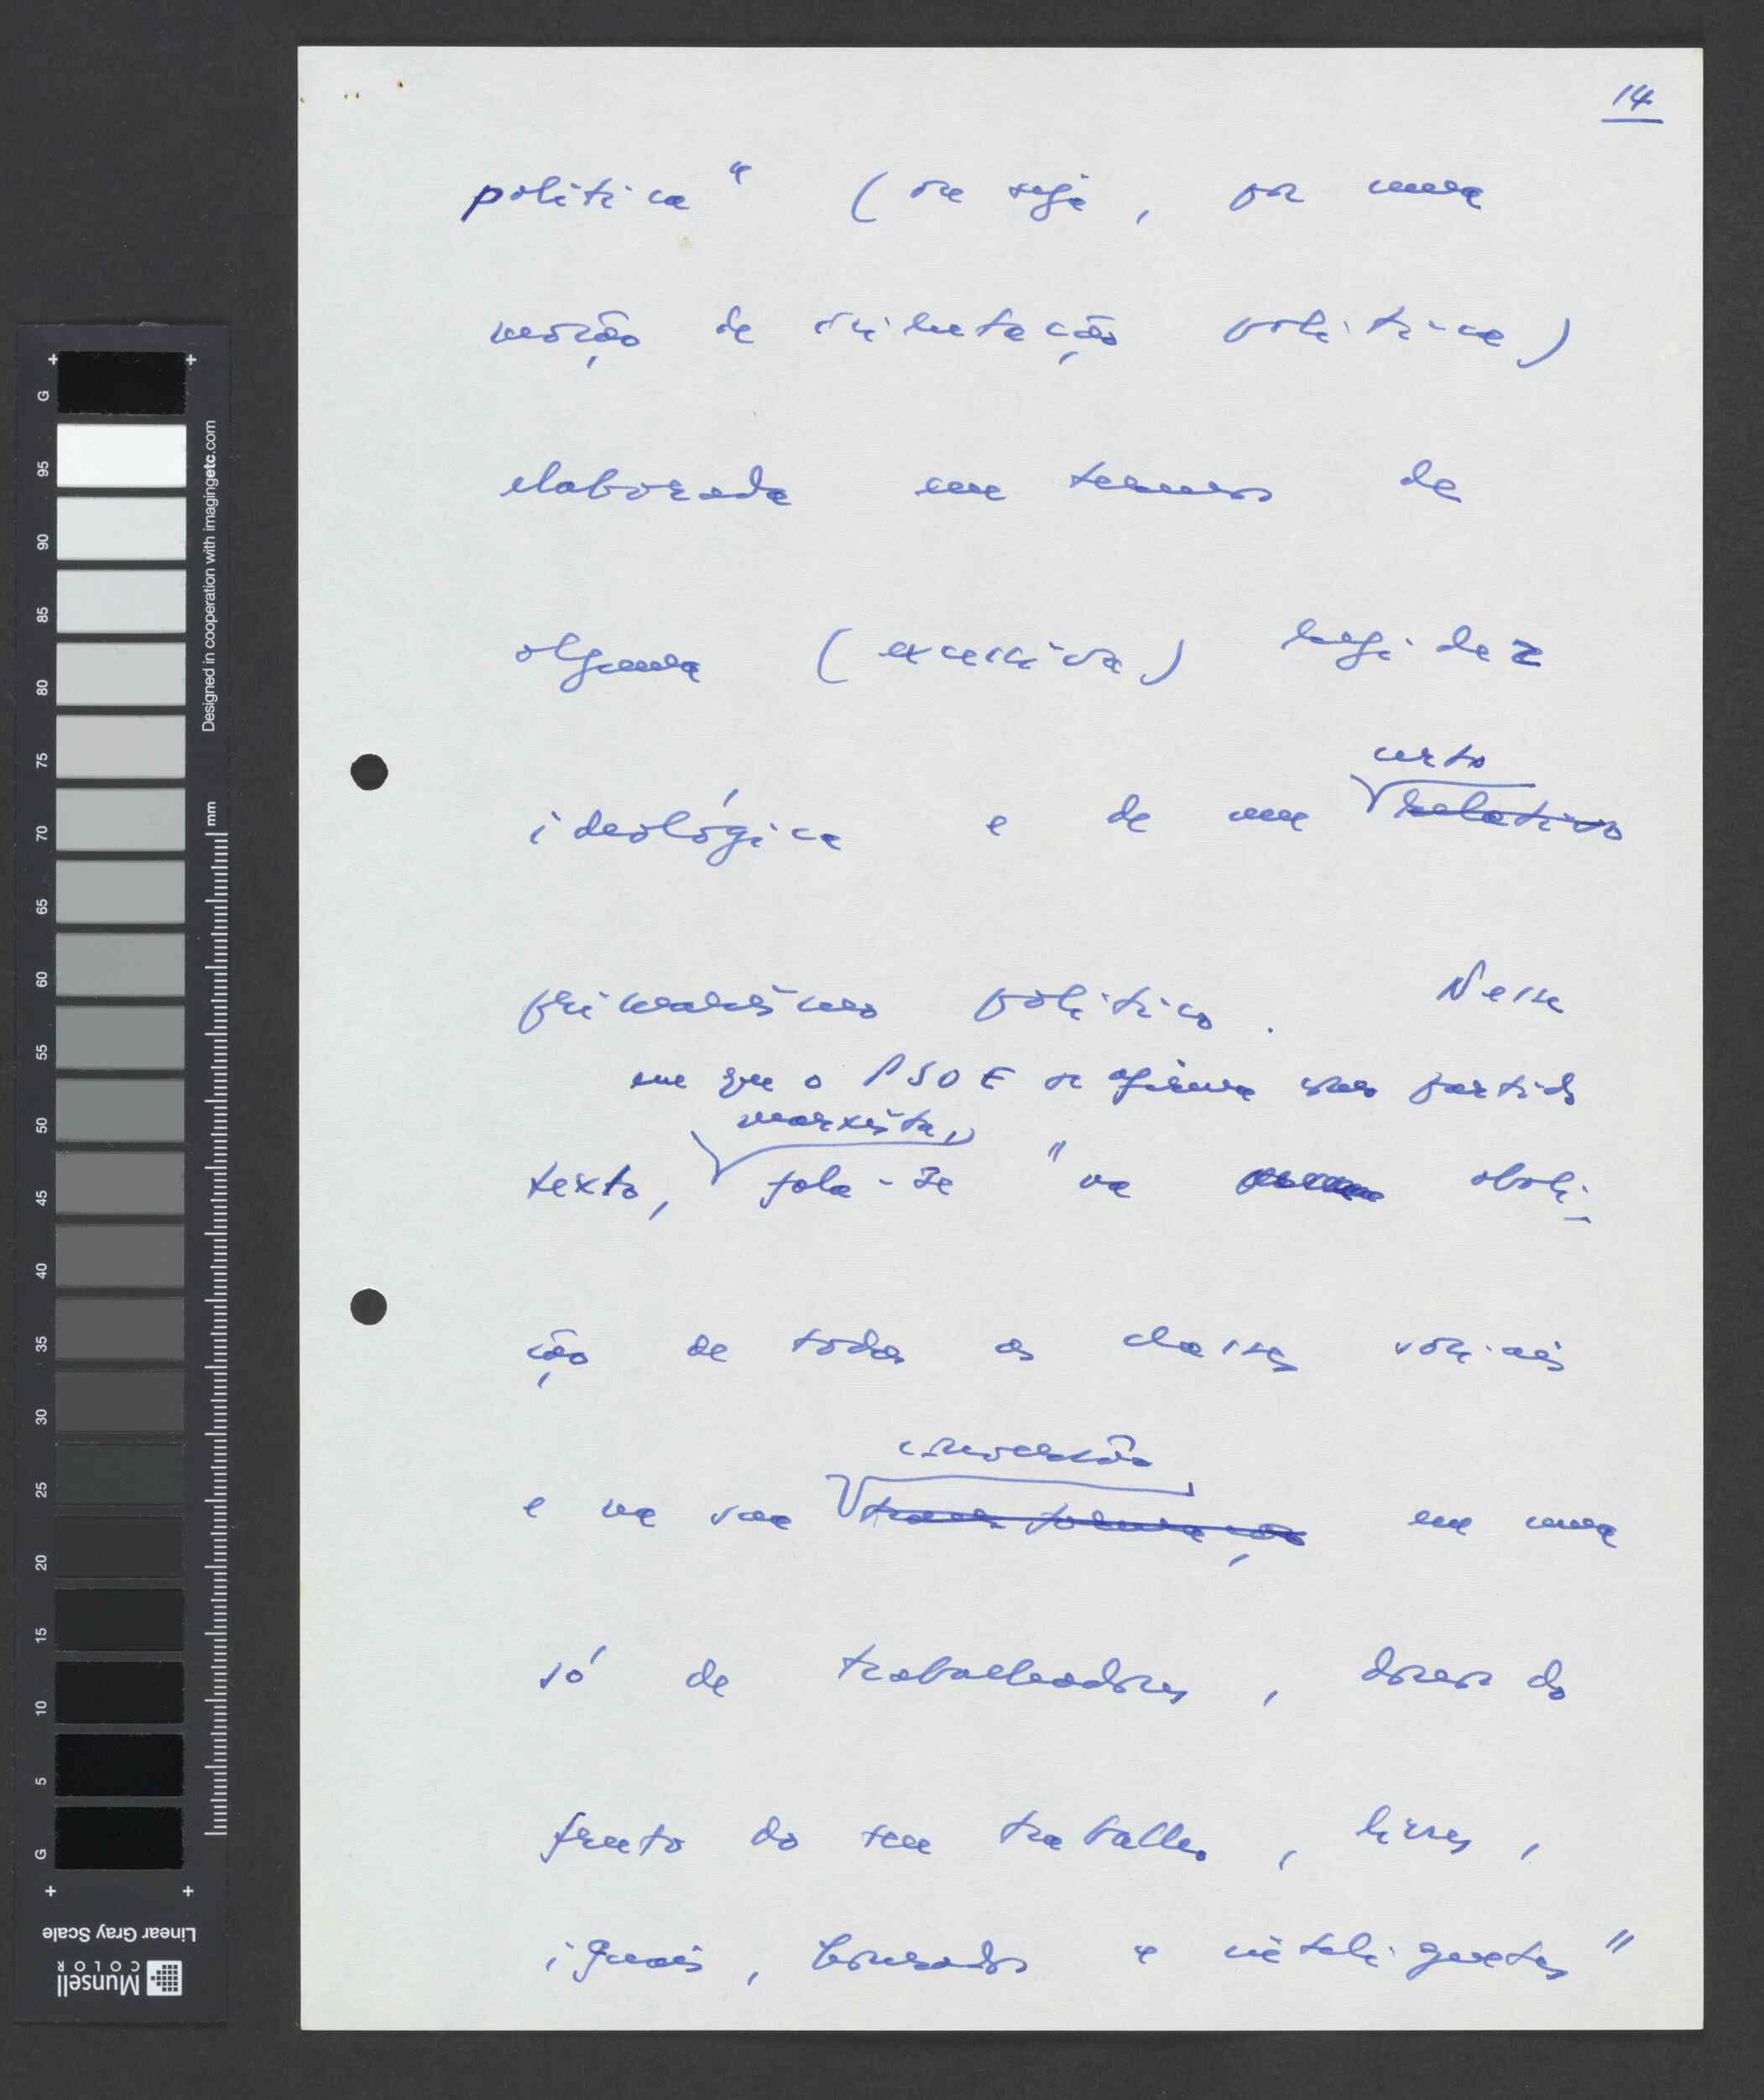 14
política" (ou seja, por uma
moção de orientação política)
elaborada em termos de
alguma (excessiva) rigidez
certo
ideológica e de um relativo
primarismo político. Nesse
em que o PSOE se afirma como partido
marxista,
texto, fala-se "na aboli-
ção de todas as classes sociais
conversão
e na sua transformação em uma
só de trabalhadores, donos do
fruto do seu trabalho, livres,
iguais, honrados e inteligentes"
G
95
90
85
80
75
70
65
60
55
50
45
40
35
30
25
20
15
10
5
G
mm
Designed in cooperation with imagingetc.com
Linear Gray Scale
Munsell
COLOR